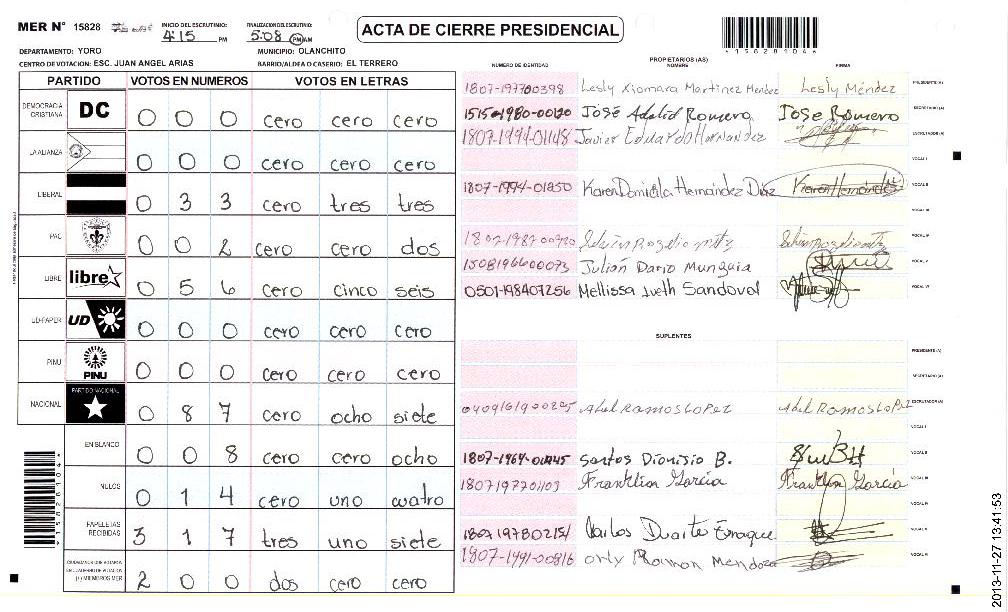 MER N° 15828 INICIO DEL ESCRUTINIO: 4:15 PM FINALIZACION DEL ESCRUTINIO: 5:08 PM AM
ACTA DE CIERRE PRESIDENCIAL
*15828104*
DEPARTAMENTO: YORO MUNICIPIO: OLANCHITO
CENTRO DE VOTACION: ESC. JUAN ANGEL ARIAS BARRIO/ALDEA O CASERIO: EL TERRERO
PARTIDO VOTOS EN NUMEROS VOTOS EN LETRAS
DEMOCRACIA CRISTIANA DC 0 0 0 cero cero cero
LA ALIANZA 0 0 0 cero cero cero
LIBERAL 0 3 3 cero tres tres
PAC 0 0 2 cero cero dos
LIBRE libre 0 5 6 cero cinco seis
UD-FAPER UD 0 0 0 cero cero cero
PINU PINU 0 0 0 cero cero cero
NACIONAL PARTIDO NACIONAL 0 8 7 cero ocho siete
EN BLANCO 0 0 8 cero cero ocho
NULOS 0 1 4 cero uno cuatro
PAPELETAS RECIBIDAS 3 1 7 tres uno siete
CIUDADANOS QUE VOTARON EN CUADERNO DE VOTACION (+) MIEMBROS MER 2 0 0 dos cero cero
*15828104*
PROPIETARIOS (AS)
NUMERO DE IDENTIDAD NOMBRE FIRMA
1807-197700398 Lesly Xiomara Martinez Mendez Lesly Méndez PRESIDENTE (A)
1515-1980-00120 José Adalid Romero Jose Romero SECRETARIO (A)
1807-1994-01148 Javier Eduardo Hernandez ESCRUTADOR (A)
VOCAL I
1807-1994-01850 Karen Daniela Hernández Díaz Karen Hernández VOCAL II
VOCAL III
VOCAL IV
1508196600073 Julián Dario Munguia VOCAL V
0501-198407256 Mellissa Jueth Sandoval VOCAL VI
SUPLENTES
PRESIDENTE (A)
SECRETARIO (A)
Abel Ramos Lopez Abel Ramos Lopez ESCRUTADOR (A)
VOCAL I
Santos Dionisio B. VOCAL II
1807197701103 Franklin Garcia Franklin Garcia VOCAL III
VOCAL IV
Carlos Duarte VOCAL V
1807-1991-00816 Orly Ramon Mendoza VOCAL VI
2013-11-27 13:41:53